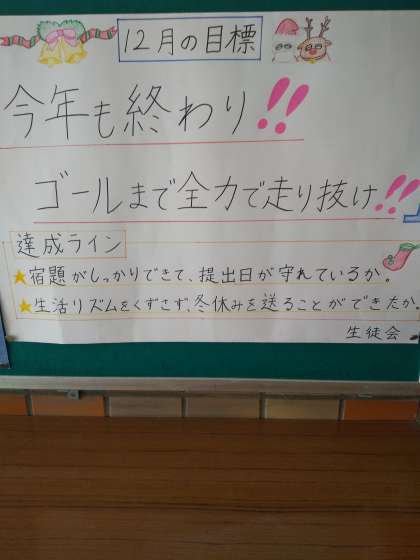 12月の目標
今年も終わり!!
ゴールまで全力で走り抜け!!
達成ライン
★宿題がしっかりできて、提出日が守れているか。
★生活リズムをくずさず、冬休みを送ることができたか。
生徒会